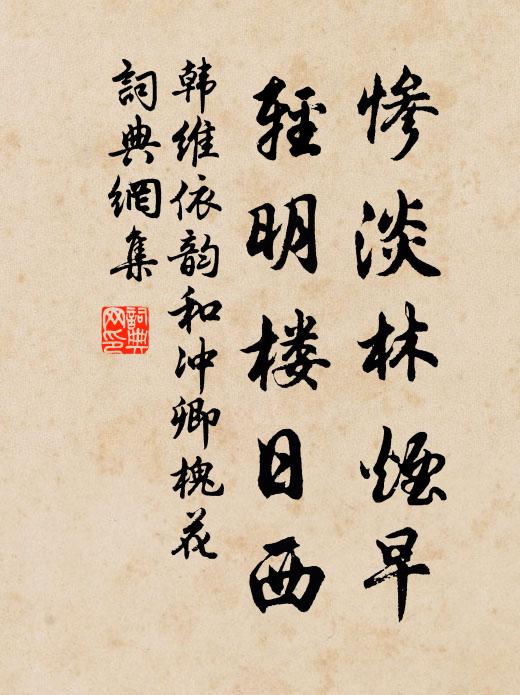 惨淡林煙早
輕明楼日西
韩維依韵和冲卿槐花
詞典網集
詞典网印